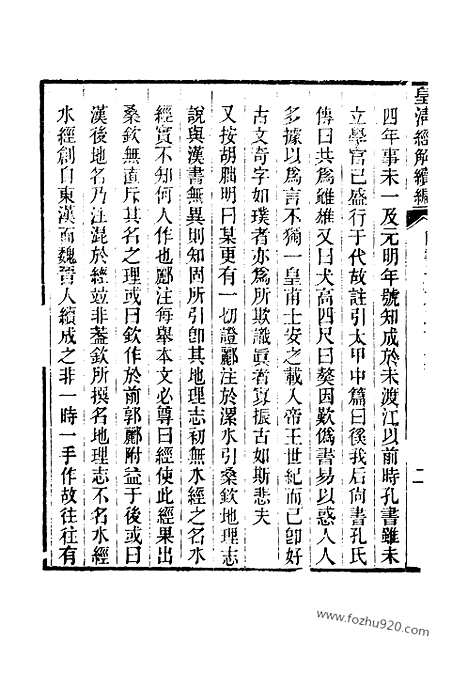 皇清經解續編
二
四年事未一及元明年號知成於未渡江以前時孔書雖未
立學官已盛行于代故註引太甲中篇曰徯我后尙書孔氏
傳曰共爲雌雄又曰犬高四尺曰獒因歎僞書易以惑人人
多據以爲言不獨一皇甫士安之載入帝王世紀而已卽好
古文奇字如璞者亦爲所欺識眞者寡振古如斯悲夫
又按胡朏明曰某更有一切證酈注於漯水引桑欽地理志
說與漢書無異則知固所引卽其地理志初無水經之名水
經實不知何人作也酈注每舉本文必尊曰經使此經果出
桑欽無直斥其名之理或曰欽作於前郭酈附益于後或曰
漢後地名乃注混於經竝非蓋欽所撰名地理志不名水經
水經創自東漢而魏晉人續成之非一時一手作故往往有
www.fozhu920.com